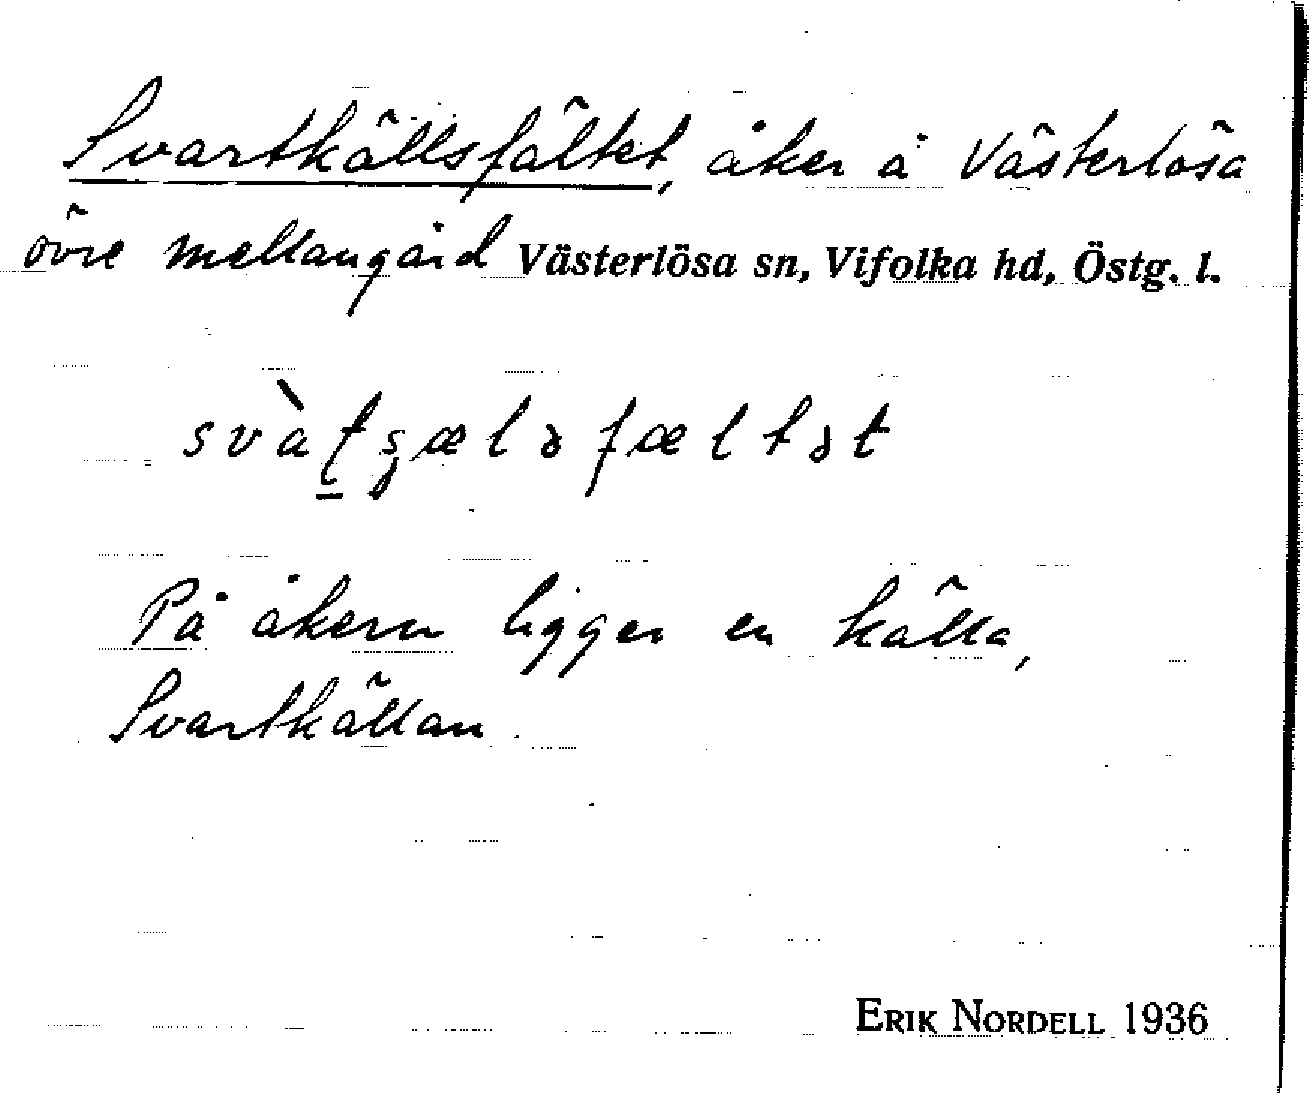 Svartkällsfältet, åker å Västerlösa
övre mellangård Västerlösa sn, Vifolka hd, Östg. l.
På åkern ligger en källa,
Svartkällan.
ERIK NORDELL 1936